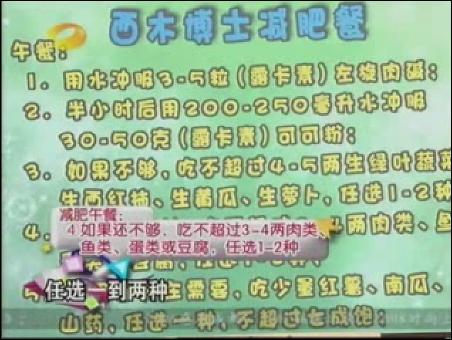 西木博士减肥餐
午餐：
1、用水冲服3-5粒（露卡素）左旋肉碱；
2、半小时后用200-250毫升水冲服
30-50克（露卡素）可可粉；
3、如果不够，吃不超过4-5两生绿叶蔬菜
生西红柿、生黄瓜、生萝卜，任选1-2种
4、
两肉类、鱼
减肥午餐：
4 如果还不够，吃不超过3-4两肉类、
鱼类、蛋类或豆腐，任选1-2种
任选一到两种
需要，吃少量红薯、南瓜、
山药，任选一种，不超过七成饱；